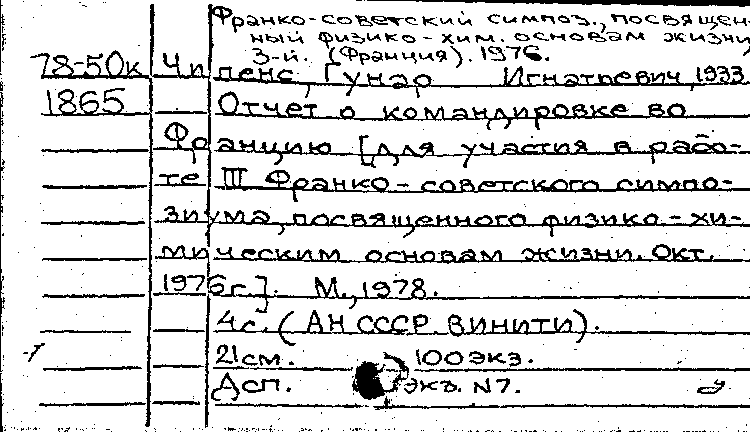 Франко-советский симпоз., посвящен-
ный физико-хим. основам жизни,
3-й. (Франция). 1976.
78-50к Чипенс, Гунар Игнатьевич, 1933
1865 Отчет о командировке во
Францию [для участия в рабо-
те III Франко-советского симпо-
зиума, посвященного физико-хи-
мическим основам жизни. Окт.
1976г.]. М., 1978.
4с. (АН СССР. ВИНИТИ).
21см. 100 экз.
Дсп. экз. N7.